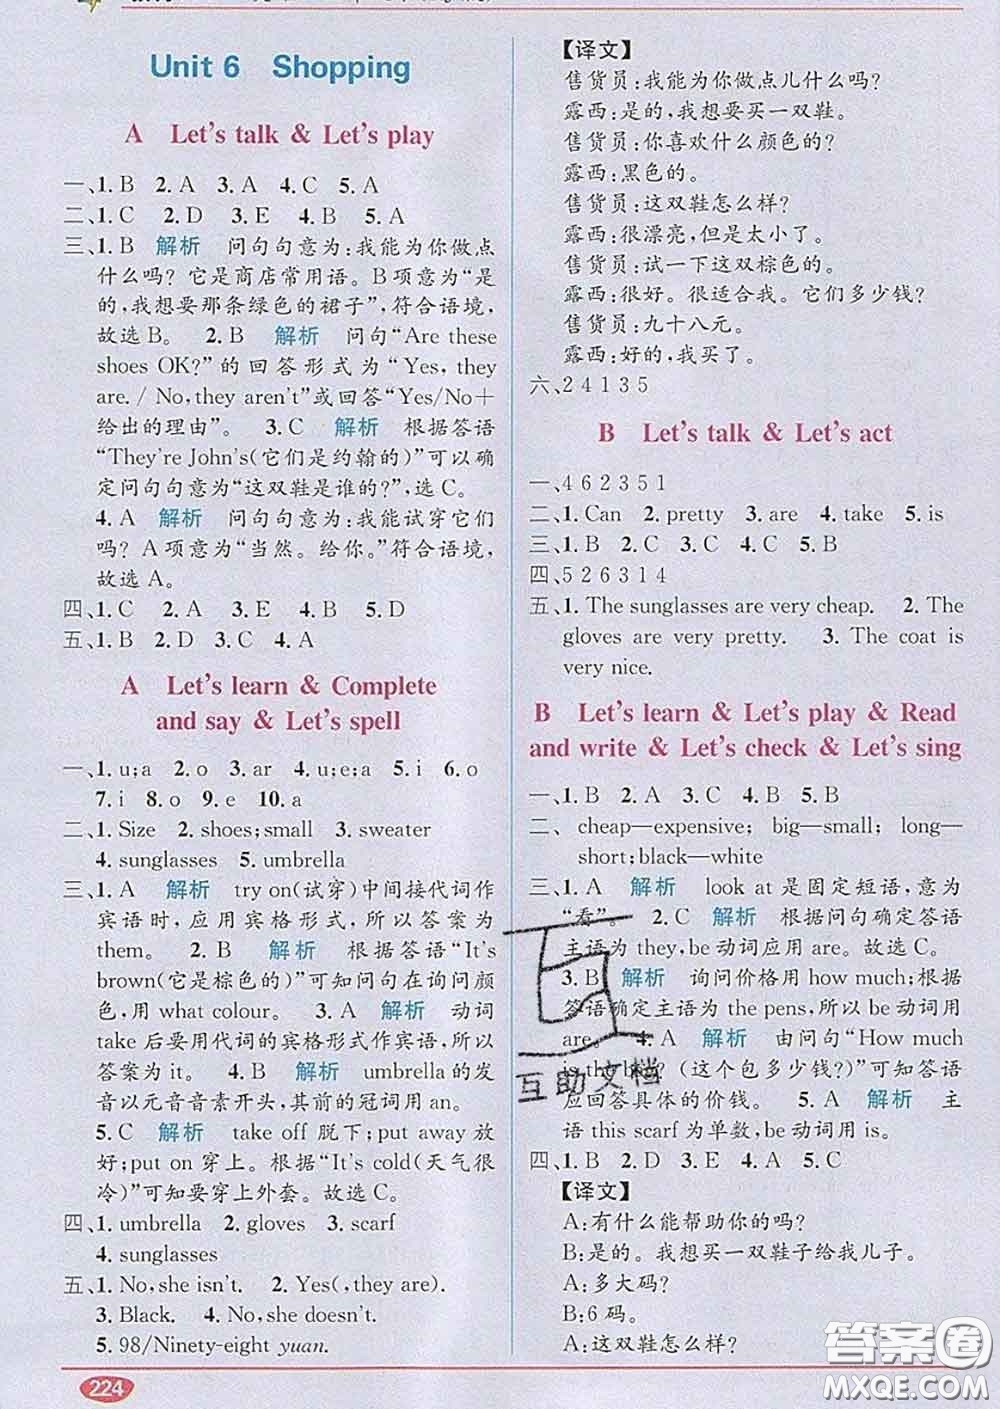 Unit 6 Shopping
A Let's talk & Let's play
一、1. B 2. A 3. A 4. C 5. A
二、1. C 2. D 3. E 4. B 5. A
三、1. B 解析 问句句意为:我能为你做点
什么吗? 它是商店常用语。B项意为“是
的,我想要那条绿色的裙子”,符合语境,
故选 B。 2. B 解析 问句“Are these
shoes OK?”的回答形式为“Yes, they
are. / No, they aren't”或回答“Yes/No＋
给出的理由”。 3. C 解析 根据答语
“They're John's(它们是约翰的)”可以确
定问句句意为“这双鞋是谁的?”,选 C。
4. A 解析 问句句意为:我能试穿它们
吗? A 项意为“当然。给你。”符合语境,
故选 A。
四、1. C 2. A 3. E 4. B 5. D
五、1. B 2. D 3. C 4. A
A Let's learn & Complete
and say & Let's spell
一、1. u;a 2. o 3. ar 4. u;e;a 5. i 6. o
7. i 8. o 9. e 10. a
二、1. Size 2. shoes;small 3. sweater
4. sunglasses 5. umbrella
三、1. A 解析 try on(试穿)中间接代词作
宾语时,应用宾格形式,所以答案为
them. 2. B 解析 根据答语“It's
brown(它是棕色的)”可知问句在询问颜
色,用 what colour。 3. A 解析 动词
take 后要用代词的宾格形式作宾语,所以
答案为 it。 4. B 解析 umbrella 的发
音以元音音素开头,其前的冠词用 an。
5. C 解析 take off 脱下;put away 放
好;put on 穿上。根据“It's cold(天气很
冷)”可知要穿上外套。故选 C。
四、1. umbrella 2. gloves 3. scarf
4. sunglasses
五、1. No, she isn't. 2. Yes(, they are).
3. Black. 4. No, she doesn't.
5. 98/Ninety-eight yuan.
224
【译文】
售货员:我能为你做点儿什么吗?
露西:是的,我想要买一双鞋。
售货员:你喜欢什么颜色的?
露西:黑色的。
售货员:这双鞋怎么样?
露西:很漂亮,但是太小了。
售货员:试一下这双棕色的。
露西:很好。很适合我。它们多少钱?
售货员:九十八元。
露西:好的,我买了。
六、2 4 1 3 5
B Let's talk & Let's act
一、4 6 2 3 5 1
二、1. Can 2. pretty 3. are 4. take 5. is
三、1. B 2. B 3. C 4. A 5. B
四、5 2 6 3 1 4
五、1. The sunglasses are very cheap. 2. The
gloves are very pretty. 3. The coat is
very nice.
B Let's learn & Let's play & Read
and write & Let's check & Let's sing
一、1. B 2. A 3. C 4. B 5. B
二、cheap—expensive; big—small; long—
short;black—white
三、1. A 解析 look at 是固定短语,意为
“看”。 2. C 解析 根据问句确定答语
主语为 they,be 动词应用 are。故选 C。
3. B 解析 询问价格用 how much;根据
答语确定主语为 the pens,所以 be 动词用
are。 4. A 解析 由问句“How much
is the bag? (这个包多少钱?)”可知答语
应回答具体的价钱。 5. A 解析 主
语 this scarf 为单数,be 动词用 is。
四、1. B 2. D 3. E 4. A 5. C
【译文】
A:有什么能帮助你的吗?
B:是的。我想买一双鞋子给我儿子。
A:多大码?
B:6 码。
A:这双鞋怎么样?
互助文档
答案圈
MXQE.COM